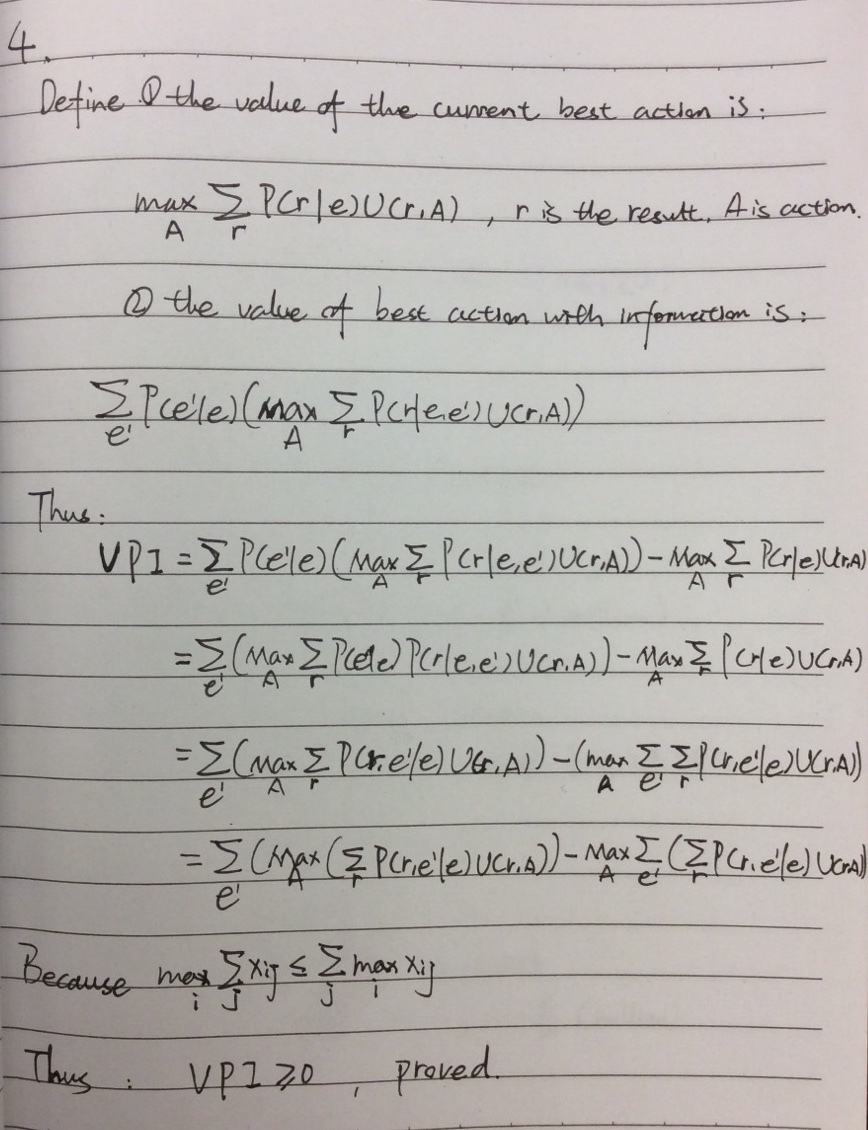 4.
Define ① the value of the current best action is:
max_A Σ_r P(r|e)U(r,A) , r is the result, A is action.
② the value of best action with information is:
Σ_e' P(e'|e)(max_A Σ_r P(r|e,e')U(r,A))
Thus:
VPI = Σ_e' P(e'|e)(Max_A Σ_r P(r|e,e')U(r,A)) - Max_A Σ_r P(r|e)U(r,A)
= Σ_e' (Max_A Σ_r P(e'|e)P(r|e,e')U(r,A)) - Max_A Σ_r P(r|e)U(r,A)
= Σ_e' (Max_A Σ_r P(r,e'|e)U(r,A)) - (max_A Σ_e' Σ_r P(r,e'|e)U(r,A))
= Σ_e' (Max_A (Σ_r P(r,e'|e)U(r,A)) - Max_A Σ_e' (Σ_r P(r,e'|e)U(r,A))
Because max_i Σ_j xij ≤ Σ_j max_i xij
Thus : VPI ≥ 0 , proved.